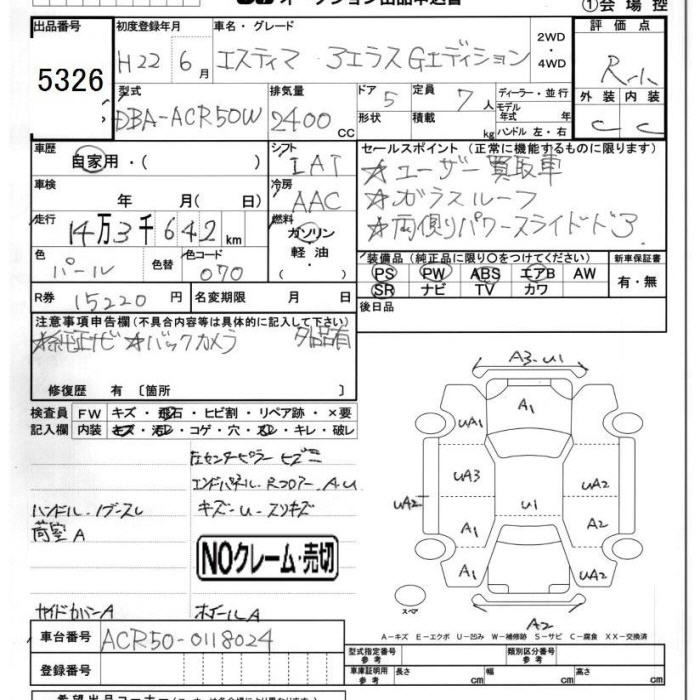 オークション出品申込書
①会場控
出品番号 初度登録年月 車名・グレード 2WD ・ 4WD 評価点
5326 H22年 6月 エスティマ 3エラスGエディション
型式 排気量 ドア 5 定員 7人 ディーラー・並行
DBA-ACR50W 2400cc 形状 積載 kg モデル年式 年 ハンドル 左・右
外装 内装
C C
車歴 自家用・( ) シフト IAT
セールスポイント (正常に機能するものに限ります)
☆ユーザー買取車
☆ガラスルーフ
☆両側りパワースライドド3.
車検 年 月( 日) 冷房 AAC
走行 14万3千642km 燃料 ガソリン 軽油 ・( )
色 パール 色替 色コード 070
装備品 (純正品に限り〇をつけてください) 新車保証書
PS PW ABS エアB AW 有・無
SR ナビ TV カワ
R券 15220円 名変期限 月 日
後日品
注意事項申告欄 (不具合内容等は具体的に記入して下さい)
☆純正ナビ ☆バックカメラ 外品有
修復歴 有 〔箇所 〕
検査員記入欄 FW キズ・飛石・ヒビ割・リペア跡・×要
内装 キズ・汚レ・コゲ・穴・スレ・キレ・破レ
左センターピラー ヒズミ
エンドパネル・Rフロアー A.U
ハンドル・ノブースレ キズ-U-スリキズ
荷室A
NOクレーム・売切
サイドカバーA ホイールA
A3-U1
A1
UA1
A1
UA3
UA2
UA2
UA2
U1
A1
A2
A1
UA2
スペア
A2
A-キズ E-エクボ U-凹み W-補修跡 S-サビ C-腐食 XX-交換済
車台番号 ACR50-0118024
型式指定番号 参考 類別区分番号 参考
車庫証明用 参考 長さ cm 幅 cm 高さ cm
登録番号